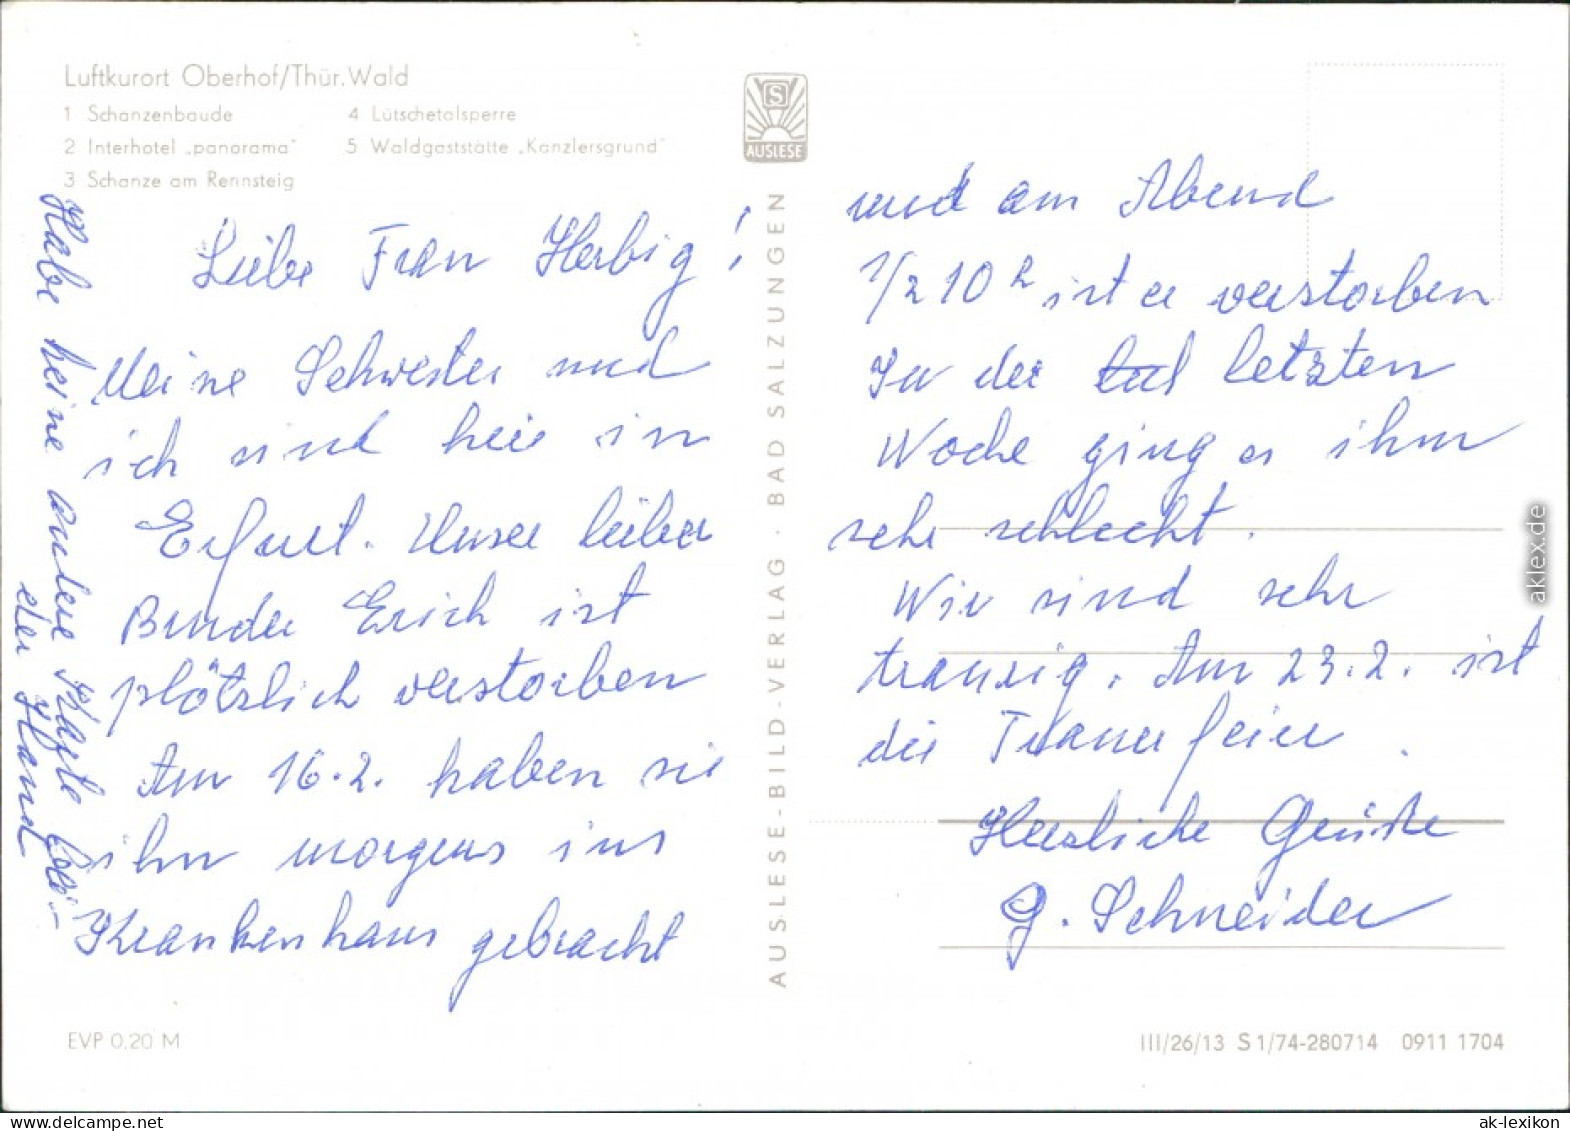 Luftkurort Oberhof/Thür. Wald
1 Schanzenbaude
2 Interhotel „panorama"
3 Schanze am Rennsteig
4 Lütschetalsperre
5 Waldgaststätte „Kanzlersgrund"
S
AUSLESE
Liebe Frau Herbig!
Meine Schwester und
ich sind hier in
Erfurt. Unser lieber
Bruder Erich ist
plötzlich verstorben
Am 16.2. haben sie
ihn morgens ins
Krankenhaus gebracht
Habe keine andere Karte bei
der Hand
AUSLESE-BILD-VERLAG · BAD SALZUNGEN
und am Abend
1/2 10 h ist er verstorben
In der letzten
Woche ging es ihm
sehr schlecht.
Wir sind sehr
traurig. Am 23.2. ist
die Trauerfeier.
Herzliche Grüße
G. Schneider
EVP 0,20 M
III/26/13 S 1/74-280714 0911 1704
aklex.de
ak-lexikon